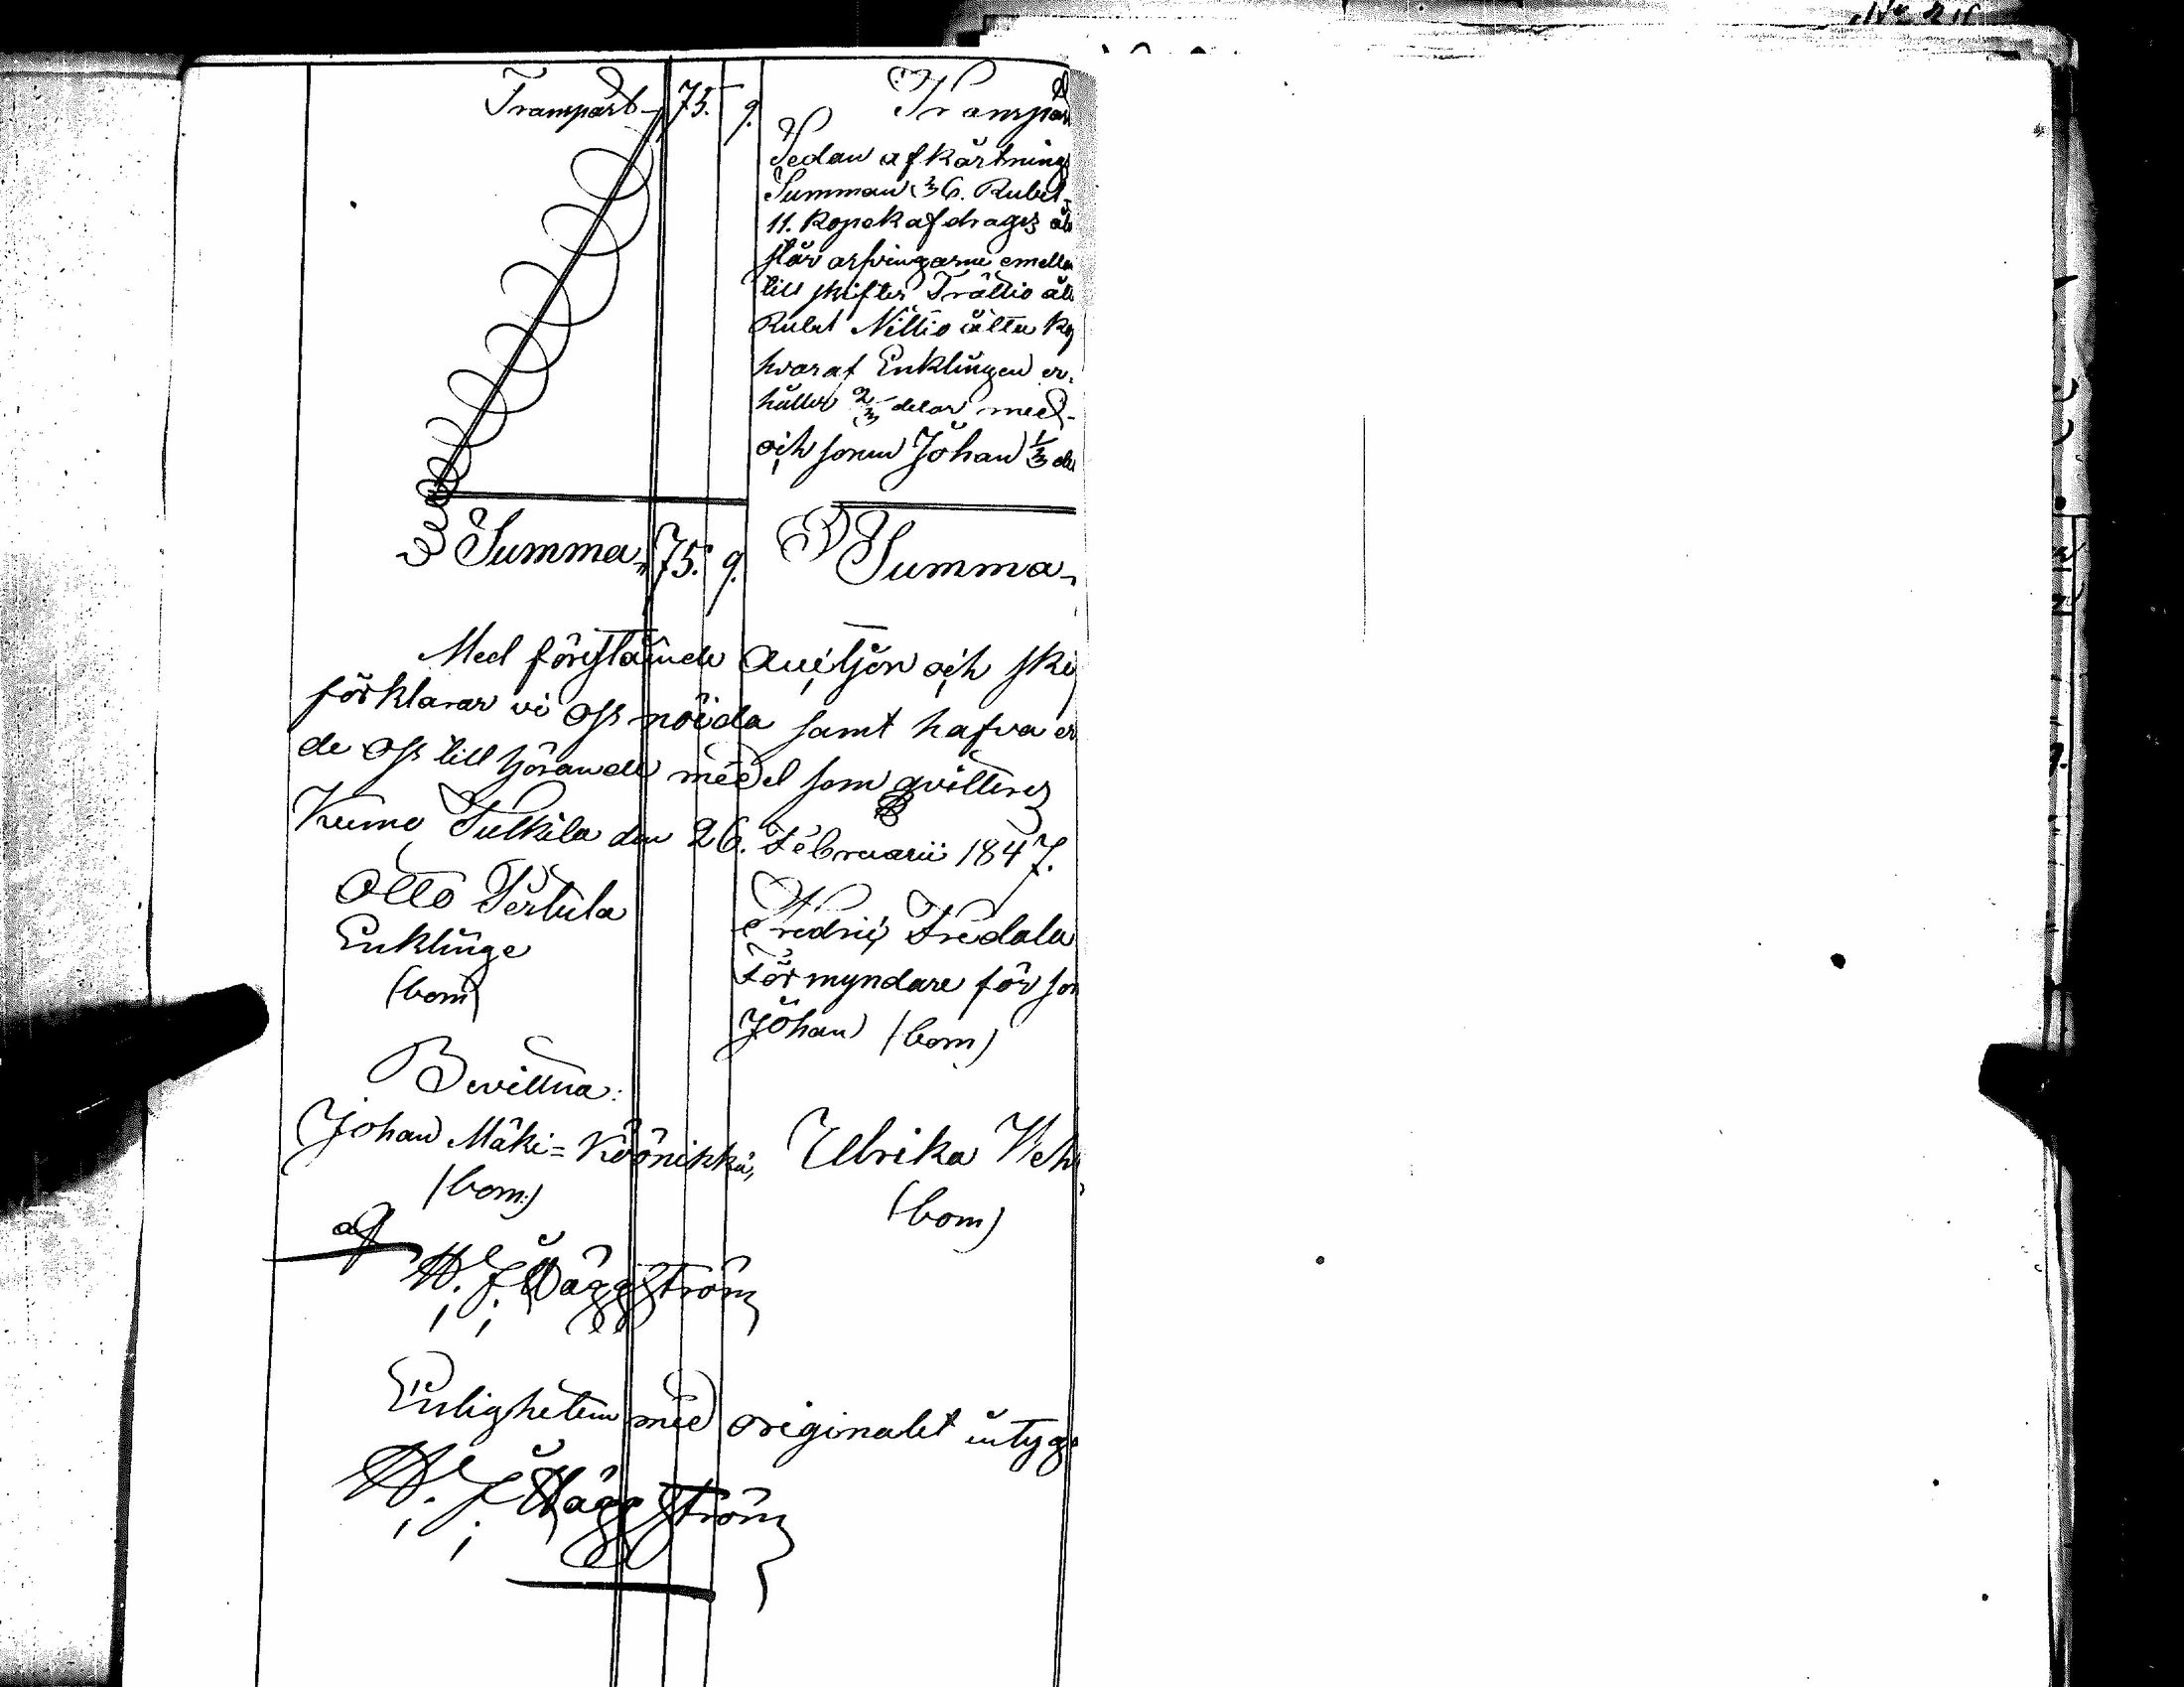 Transport 75. 9.
Transpor
Sedan afkårtnings
Summan 36. Rubel
11. Kopek afdrages åt
står arfvingarne emella
till skiftes Trättio åtta
Rubel Nittio åtta Ko
hvaraf Enklingen er-
håller 2/3 delar med
och sonen Johan 1/3 de
Summa 75. 9. Summa
Med föreståënde Auctjon och ski
förklarar vi oss nöida samt hafva er
de oss till hörande medel som qvitteres
Kumo Tulkila den 26. Februarii 1847.
Otto Pertula
Enklinge
(bom)
Fredric Fredala
Förmyndare för son
Johan (bom)
Bevittna:
Johan Mäki=Köönikkä, Ulrika Weh
(bom) (bom)
af
W. J. Häggström
Enligheten med originalet intyga
W. J. Häggström